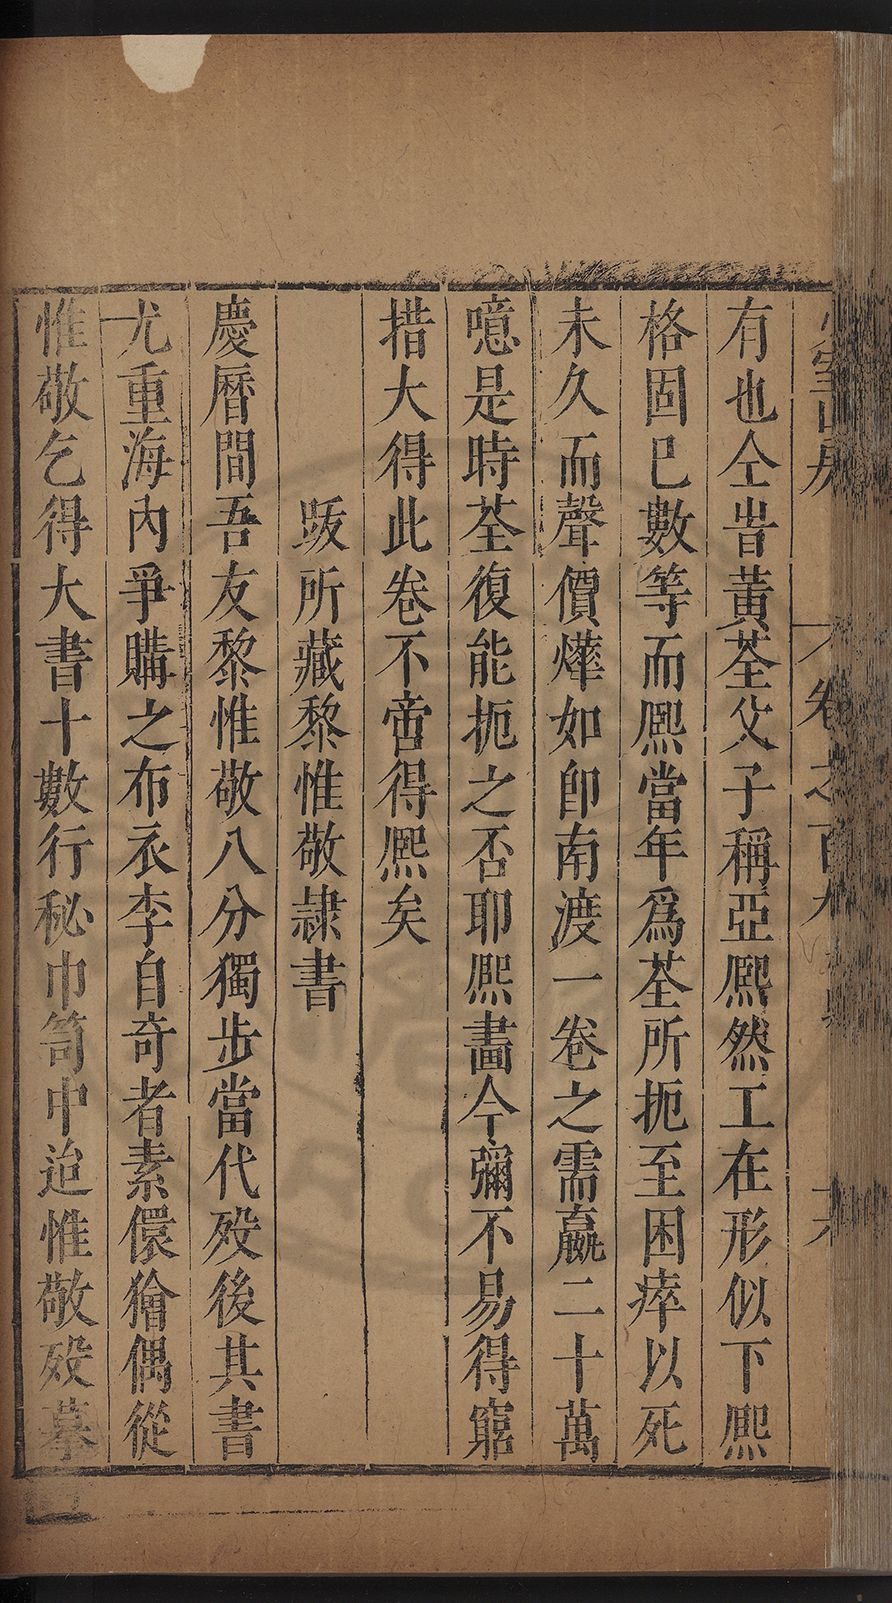 卷之百九
十六
有也仝昔黃荃父子稱亞熈然工在形似下熈
格固已數等而熈當年爲荃所扼至困瘁以死
未久而聲價燁如卽南渡一卷之需贏二十萬
噫是時荃復能扼之否耶熈畫今彌不易得窮
措大得此卷不啻得熈矣
跋所藏黎惟敬隷書
慶曆間吾友黎惟敬八分獨步當代歿後其書
尤重海內爭購之布衣李自奇者素儇獪偶從
惟敬乞得大書十數行秘巾笥中迨惟敬歿摹